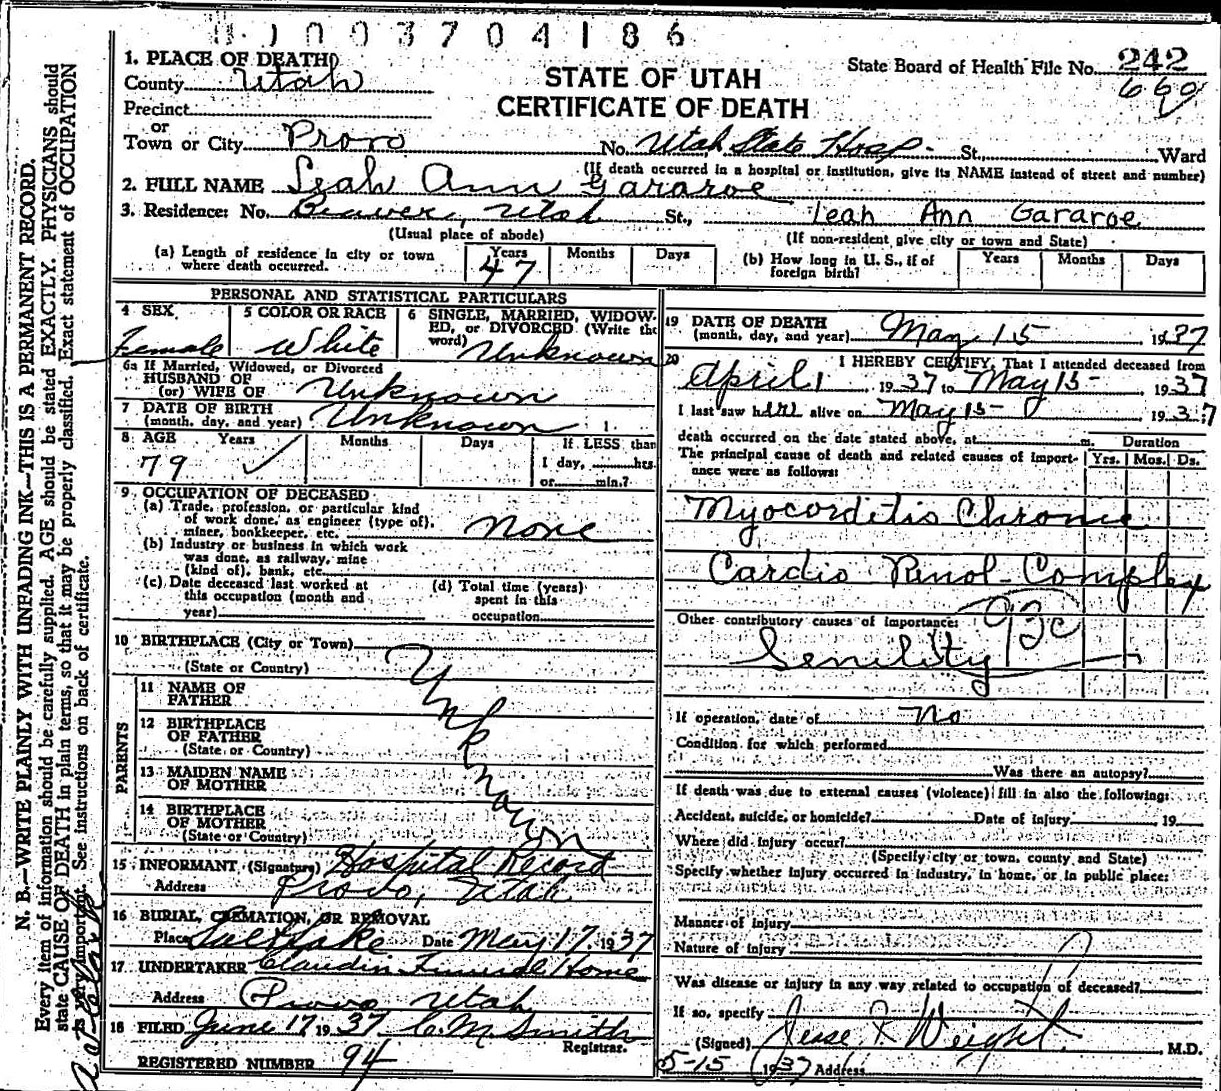 0 1 0 0 3 7 0 4 1 8 6
1. PLACE OF DEATH
County Utah
Precinct
or
Town or City Provo
STATE OF UTAH
CERTIFICATE OF DEATH
State Board of Health File No. 242
660
No. Utah State Hosp. St., Ward
(If death occurred in a hospital or institution, give its NAME instead of street and number)
2. FULL NAME Leah Ann Gararoe
3. Residence: No. Beaver, Utah St., Leah Ann Gararoe
(Usual place of abode) (If non-resident give city or town and State)
(a) Length of residence in city or town where death occurred. Years 47 Months Days
(b) How long in U. S., if of foreign birth? Years Months Days
PERSONAL AND STATISTICAL PARTICULARS
4 SEX Female
5 COLOR OR RACE White
6 SINGLE, MARRIED, WIDOWED, or DIVORCED (Write the word) Unknown
6a If Married, Widowed, or Divorced
HUSBAND OF
(or) WIFE OF Unknown
7 DATE OF BIRTH
(month, day, and year) Unknown
8 AGE Years Months Days If LESS than
79 ✓ 1 day, hrs.
or min.?
9 OCCUPATION OF DECEASED
(a) Trade, profession, or particular kind
of work done, as engineer (type of),
miner, bookkeeper, etc. None
(b) Industry or business in which work
was done, as railway, mine
(kind of), bank, etc.
(c) Date deceased last worked at
this occupation (month and
year)
(d) Total time (years)
spent in this
occupation
10 BIRTHPLACE (City or Town)
(State or Country)
Unknown
PARENTS
11 NAME OF
FATHER
12 BIRTHPLACE
OF FATHER
(State or Country)
13 MAIDEN NAME
OF MOTHER
14 BIRTHPLACE
OF MOTHER
(State or Country)
15 INFORMANT (Signature) Hospital Record
Address Provo, Utah
16 BURIAL, CREMATION, OR REMOVAL
Place Salt Lake Date May 17, 1937
17 UNDERTAKER Claudin Funeral Home
Address Provo Utah
18 FILED June 17 1937 C. M. Smith
Registrar.
REGISTERED NUMBER 94
19 DATE OF DEATH
(month, day, and year) May 15 1937
20 I HEREBY CERTIFY, That I attended deceased from
April 1 1937 to May 15 1937
I last saw her alive on May 15 1937
death occurred on the date stated above, at m. Duration
The principal cause of death and related causes of importance were as follows: Yrs. Mos. Ds.
Myocorditis Chronic
Cardio Renol Complex
Other contributory causes of importance: 93c
Senility
If operation, date of No
Condition for which performed
Was there an autopsy?
If death was due to external causes (violence) fill in also the following:
Accident, suicide, or homicide? Date of injury 19
Where did injury occur?
(Specify city or town, county and State)
Specify whether injury occurred in industry, in home, or in public place:
Manner of injury
Nature of injury
Was disease or injury in any way related to occupation of deceased?
If so, specify
(Signed) Jesse R Weight M.D.
5-15 1937 Address
N. B.—WRITE PLAINLY WITH UNFADING INK—THIS IS A PERMANENT RECORD.
Every item of information should be carefully supplied. AGE should be stated EXACTLY. PHYSICIANS should
state CAUSE OF DEATH in plain terms, so that it may be properly classified. Exact statement of OCCUPATION
is very important. See instructions on back of certificate.